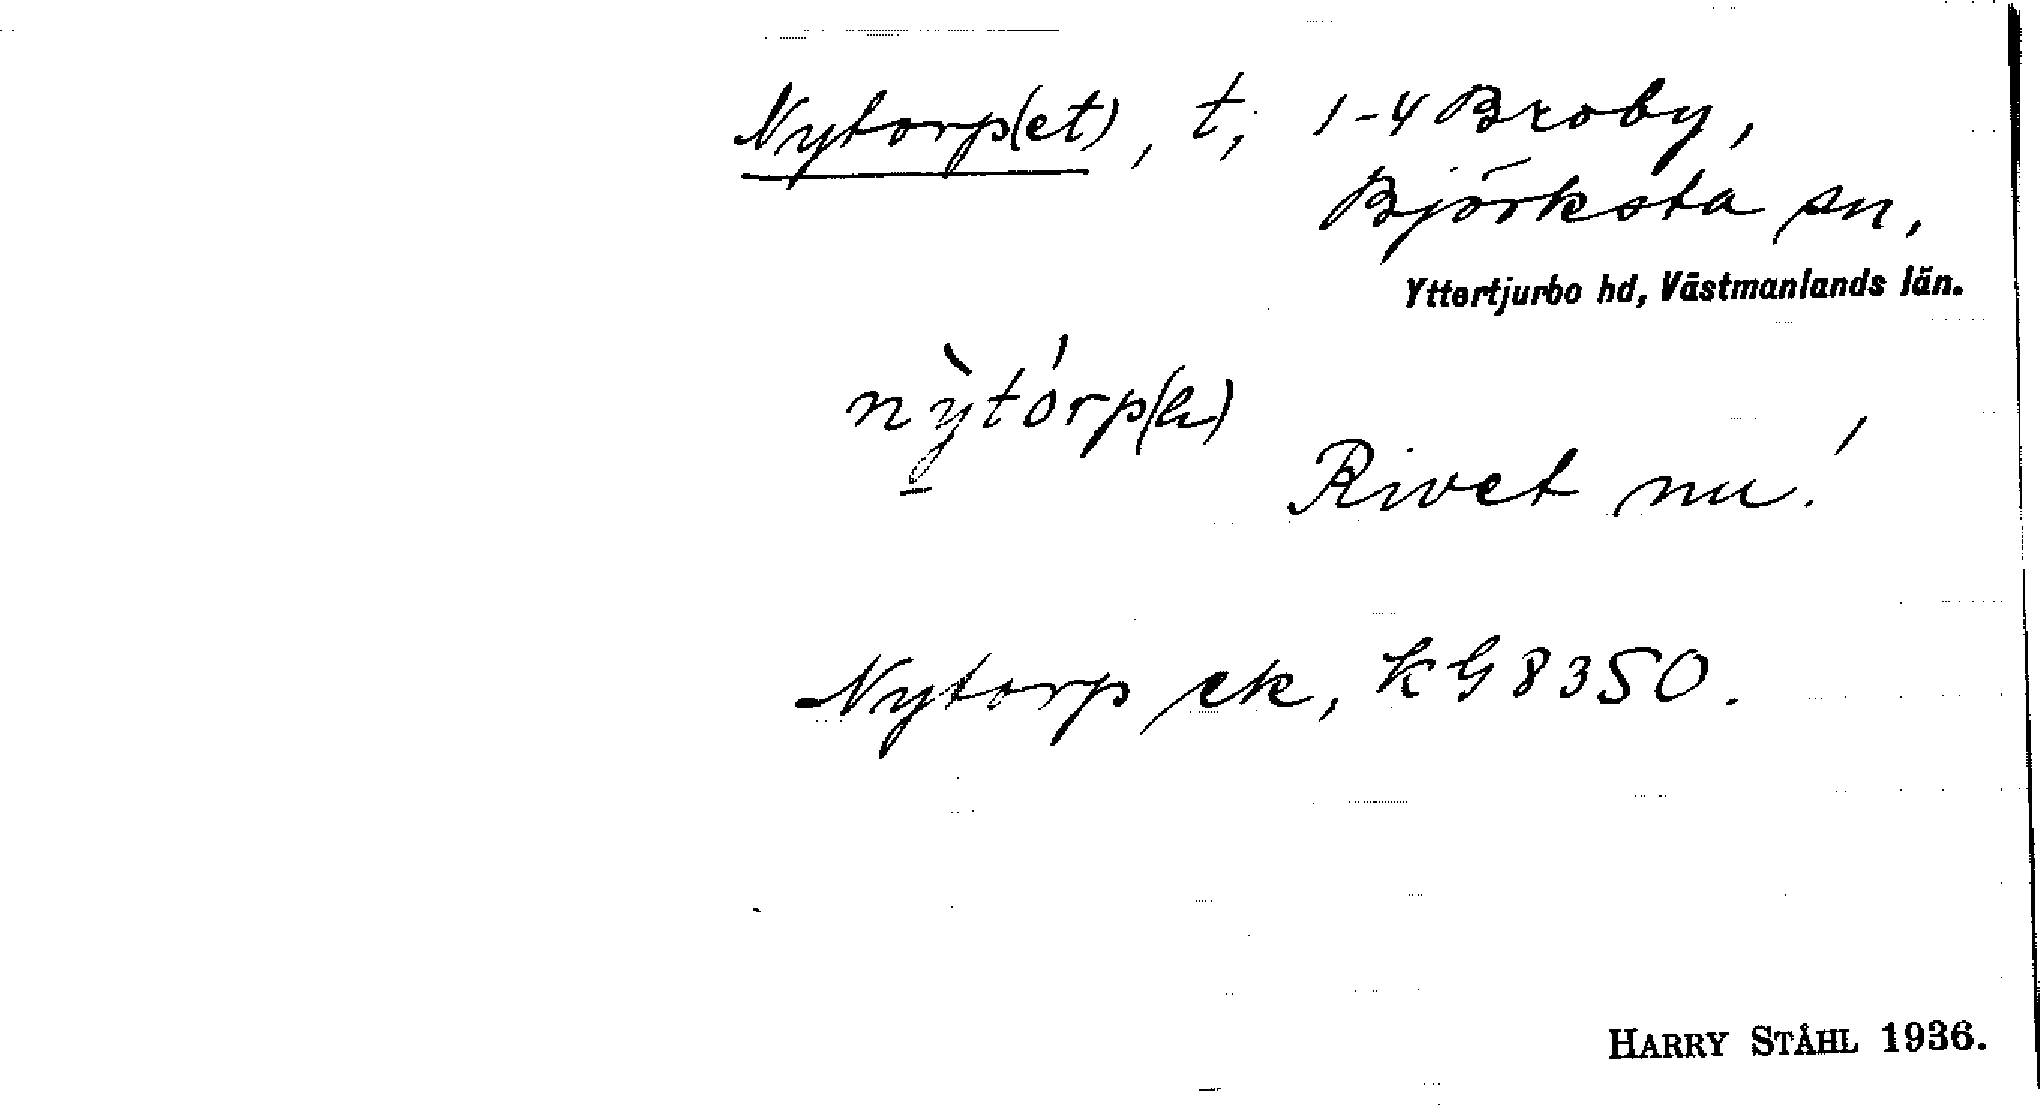 Nytorp(et), t, 1-4 Broby,
Björksta sn,
Yttertjurbo hd, Västmanlands län.
nỳtórp(ə)
Rivet nu!
Nytorp ek, KG 8350.
HARRY STÅHL 1936.